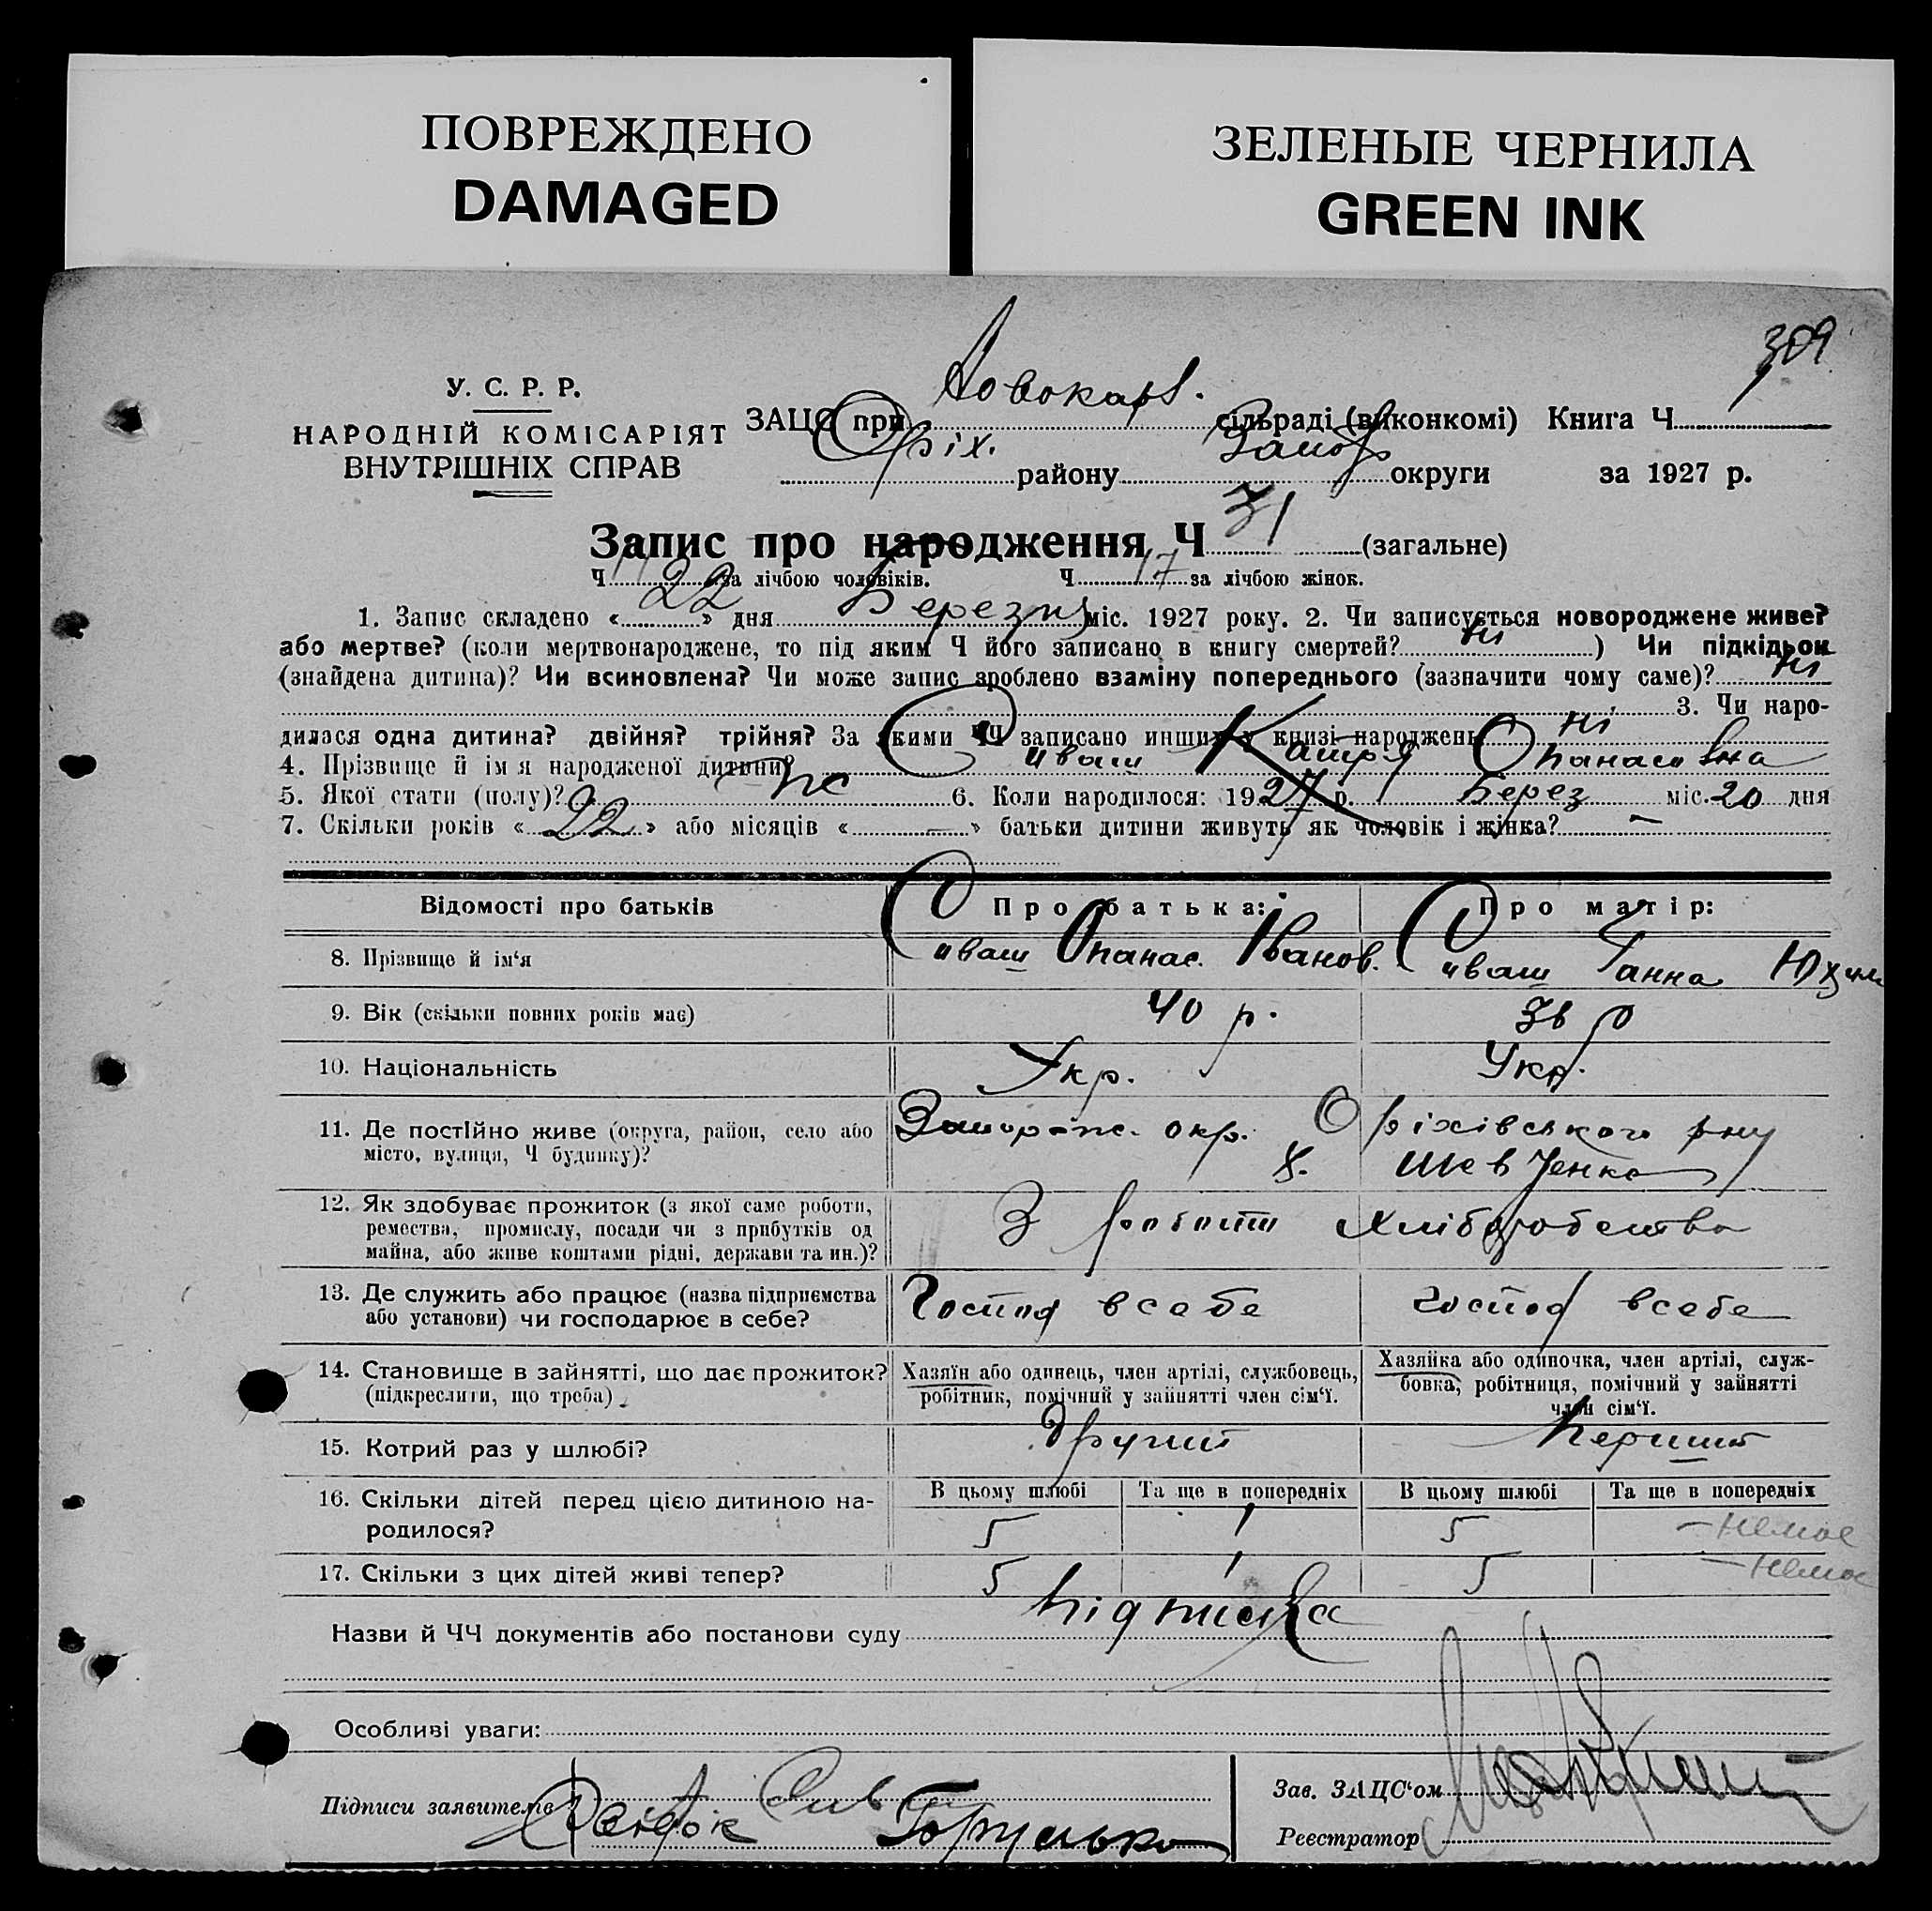 ПОВРЕЖДЕНО
DAMAGED
ЗЕЛЕНЫЕ ЧЕРНИЛА
GREEN INK
309
У. С. Р. Р.
НАРОДНІЙ КОМІСАРІЯТ
ВНУТРІШНІХ СПРАВ
ЗАЦС при Новокарл. сільраді (виконкомі) Книга Ч
Оріх. району Запор округи за 1927 р.
Запис про народження Ч 31 (загальне)
Ч 14 за лічбою чоловіків. Ч 17 за лічбою жінок.
1. Запис складено « 22 » дня Березня міс. 1927 року. 2. Чи записується новороджене живе?
або мертве? (коли мертвонароджене, то під яким Ч його записано в книгу смертей? ні ) Чи підкідьок
(знайдена дитина)? Чи всиновлена? Чи може запис зроблено взаміну попереднього (зазначити чому саме)? ні
3. Чи наро-
дилася одна дитина? двійня? трійня? За якими ЧЧ записано инших у книзі народжень ні
4. Прізвище й ім я народженої дитини? Сиваш Катря Опанасівна
5. Якої стати (полу)? Же 6. Коли народилося: 1927 р. Берез міс. 20 дня
7. Скільки років « 22 » або місяців « — » батьки дитини живуть як чоловік і жінка? —
Відомості про батьків Про батька: Про матір:
8. Прізвище й ім‘я Сиваш Опанас. Іванов. Сиваш Ганна Юхим
9. Вік (скільки повних років має) 40 р. 36 р
10. Національність Укр. Укр.
11. Де постійно живе (округа, район, село або Запоріж. окр. Оріхівського р-ну
місто, вулиця, Ч будинку)? х. Шевченко
12. Як здобуває прожиток (з якої саме роботи,
ремества, промислу, посади чи з прибутків од З роботи хліборобства
майна, або живе коштами рідні, держави та ин.)?
13. Де служить або працює (назва підприємства Господ в себе господ в себе
або установи) чи господарює в себе?
14. Становище в зайнятті, що дає прожиток? Хазяїн або одинець, член артілі, службовець, Хазяйка або одиночка, член артілі, служ-
(підкреслити, що треба) робітник, помічний у зайнятті член сім‘ї. бовка, робітниця, помічний у зайнятті
член сім‘ї.
15. Котрий раз у шлюбі? Другий Перший
16. Скільки дітей перед цією дитиною на- В цьому шлюбі Та ще в попередніх В цьому шлюбі Та ще в попередніх
родилося? 5 1 5 — немає
17. Скільки з цих дітей живі тепер? 5 1 5 — немає
Назви й ЧЧ документів або постанови суду підписка
Особливі уваги:
Підписи заявителів Сив
Зав. ЗАЦС‘ом
Реєстратор